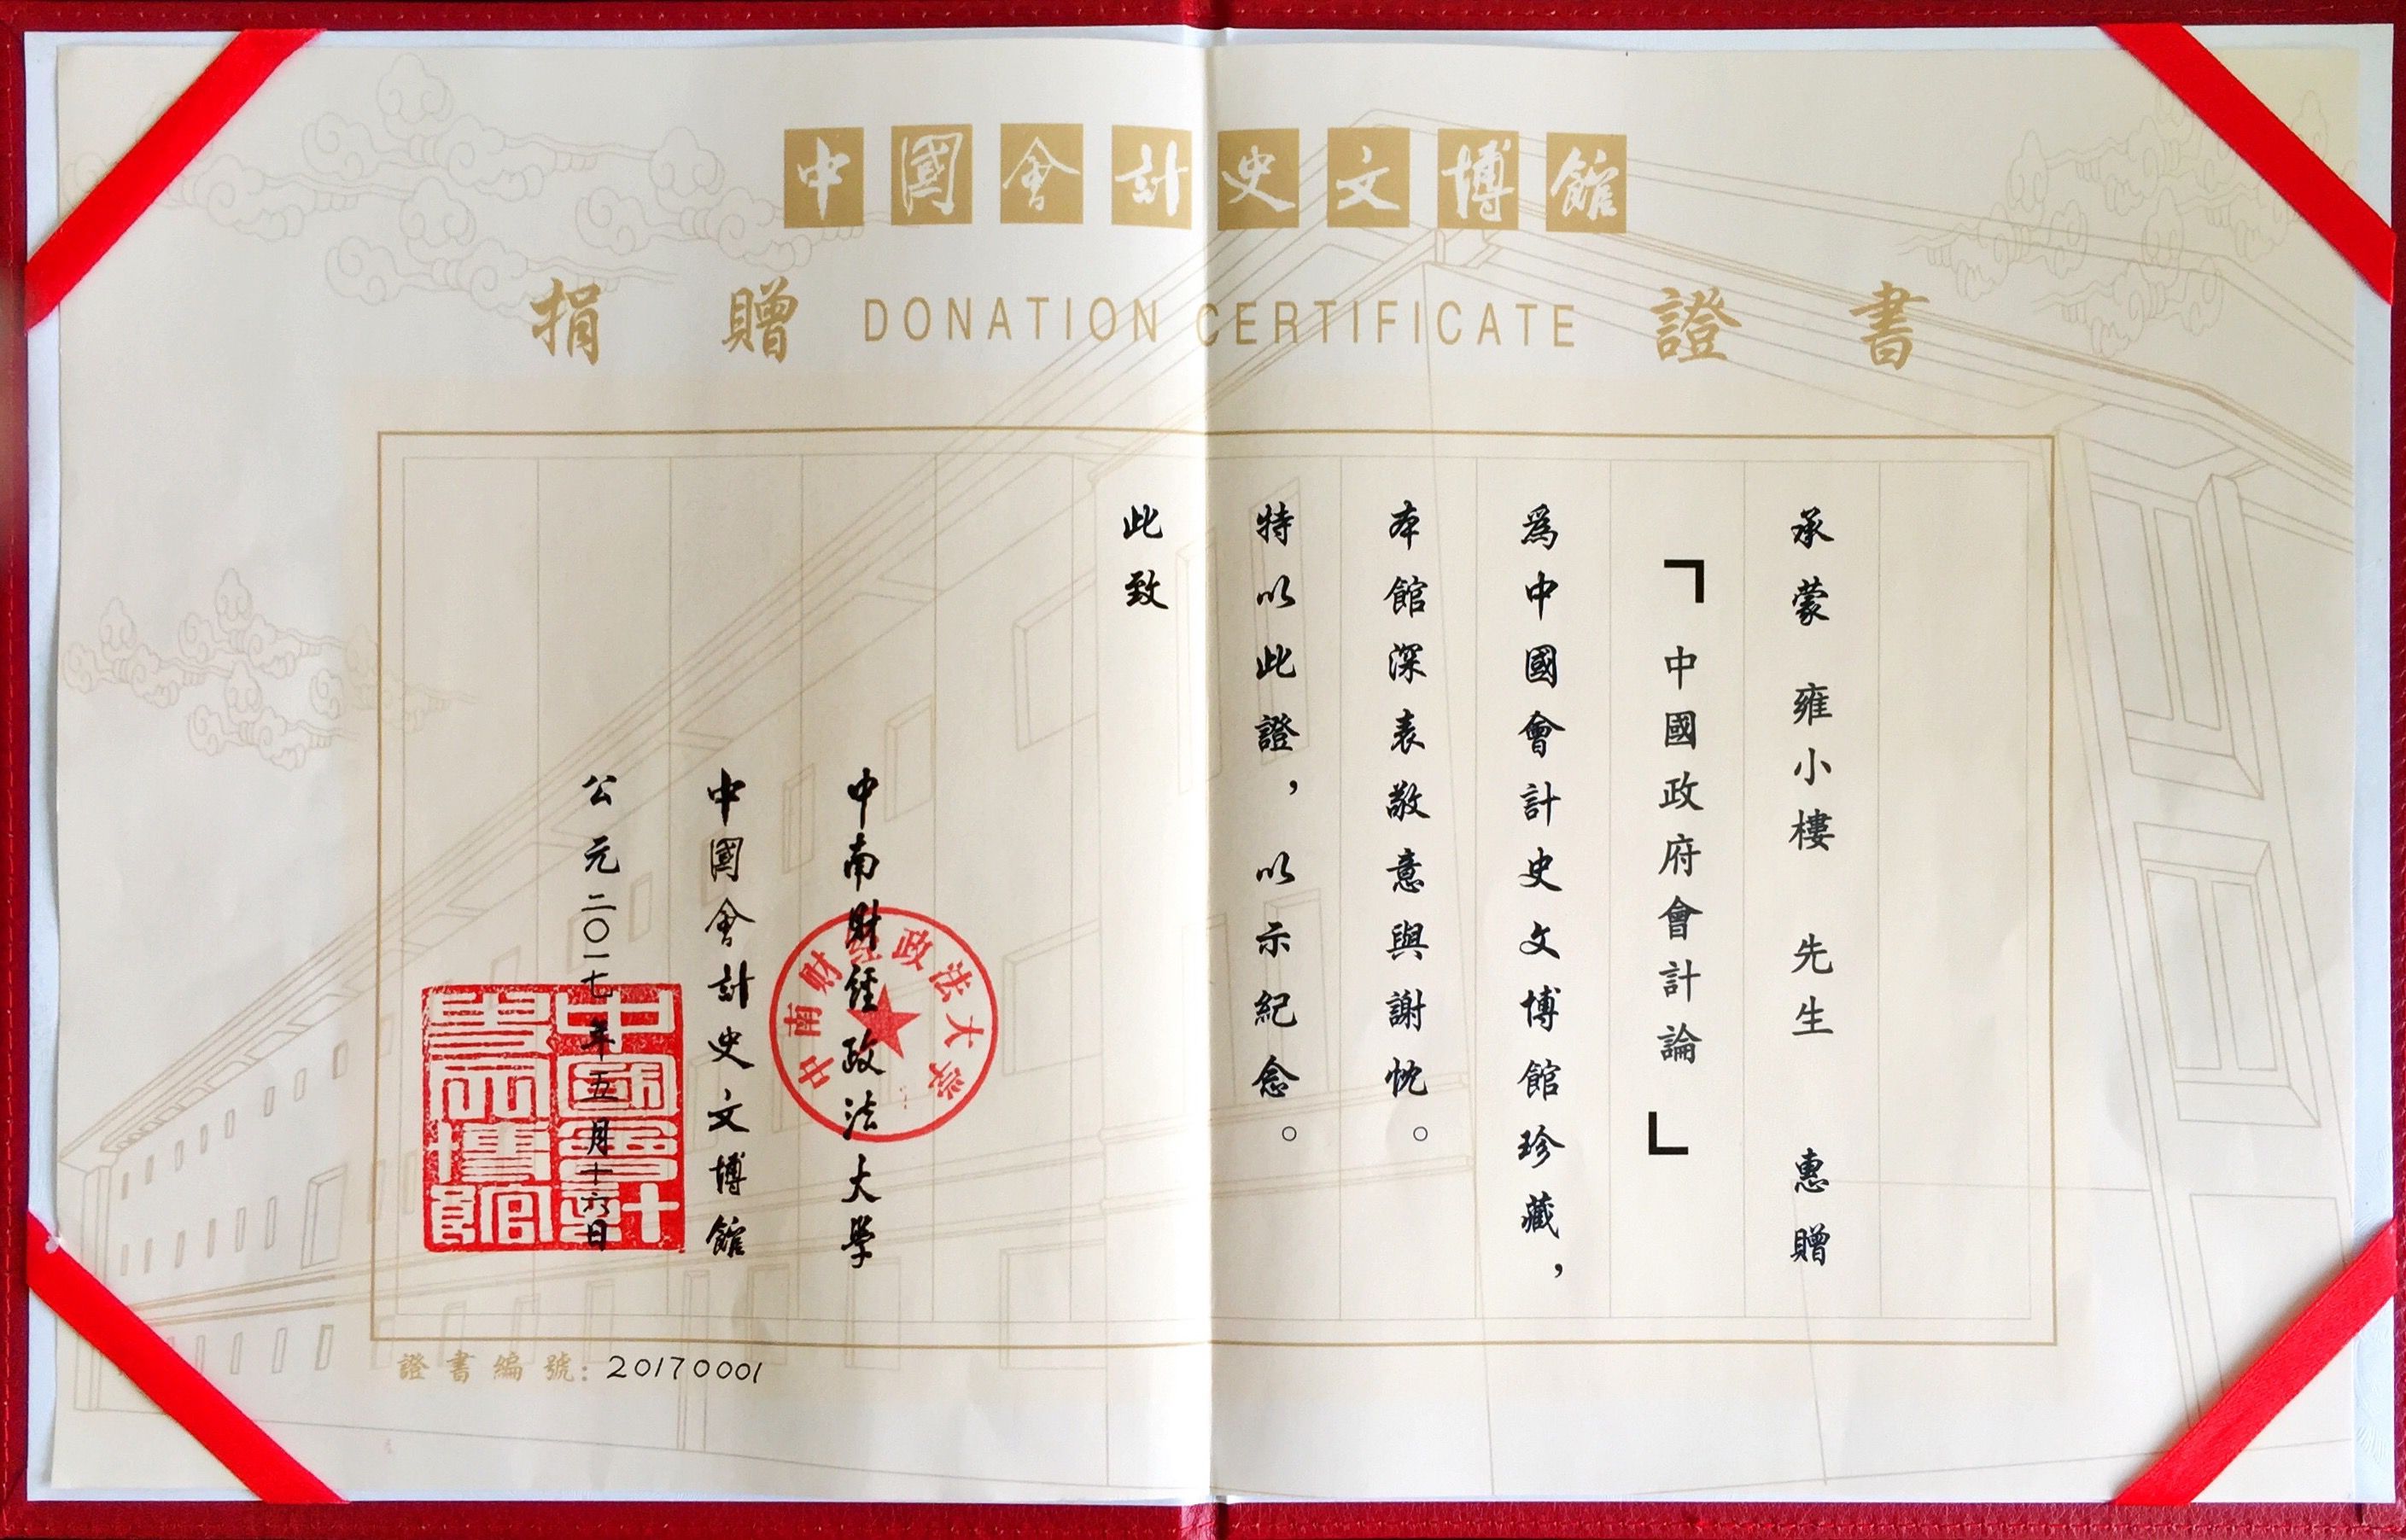 中國會計史文博館
捐贈 DONATION CERTIFICATE 證書
承蒙 雍小樓 先生 惠贈
「中國政府會計論」
爲中國會計史文博館珍藏，
本館深表敬意與謝忱。
特以此證，以示紀念。
此致
中南財經政法大學
中國會計史文博館
公元二〇一七年五月十六日
中南财经政法大学
中國會計史文博館
證書編號：20170001